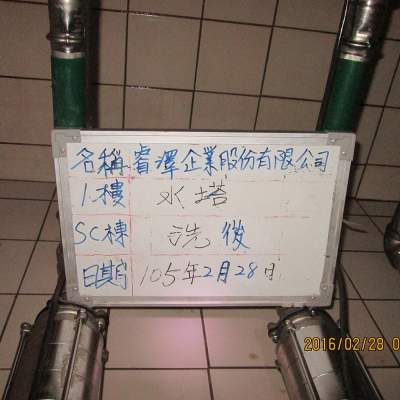 名稱睿澤企業股份有限公司
1.樓 水塔
SC棟 洗後
日期 105年2月28日
2016/02/28 0